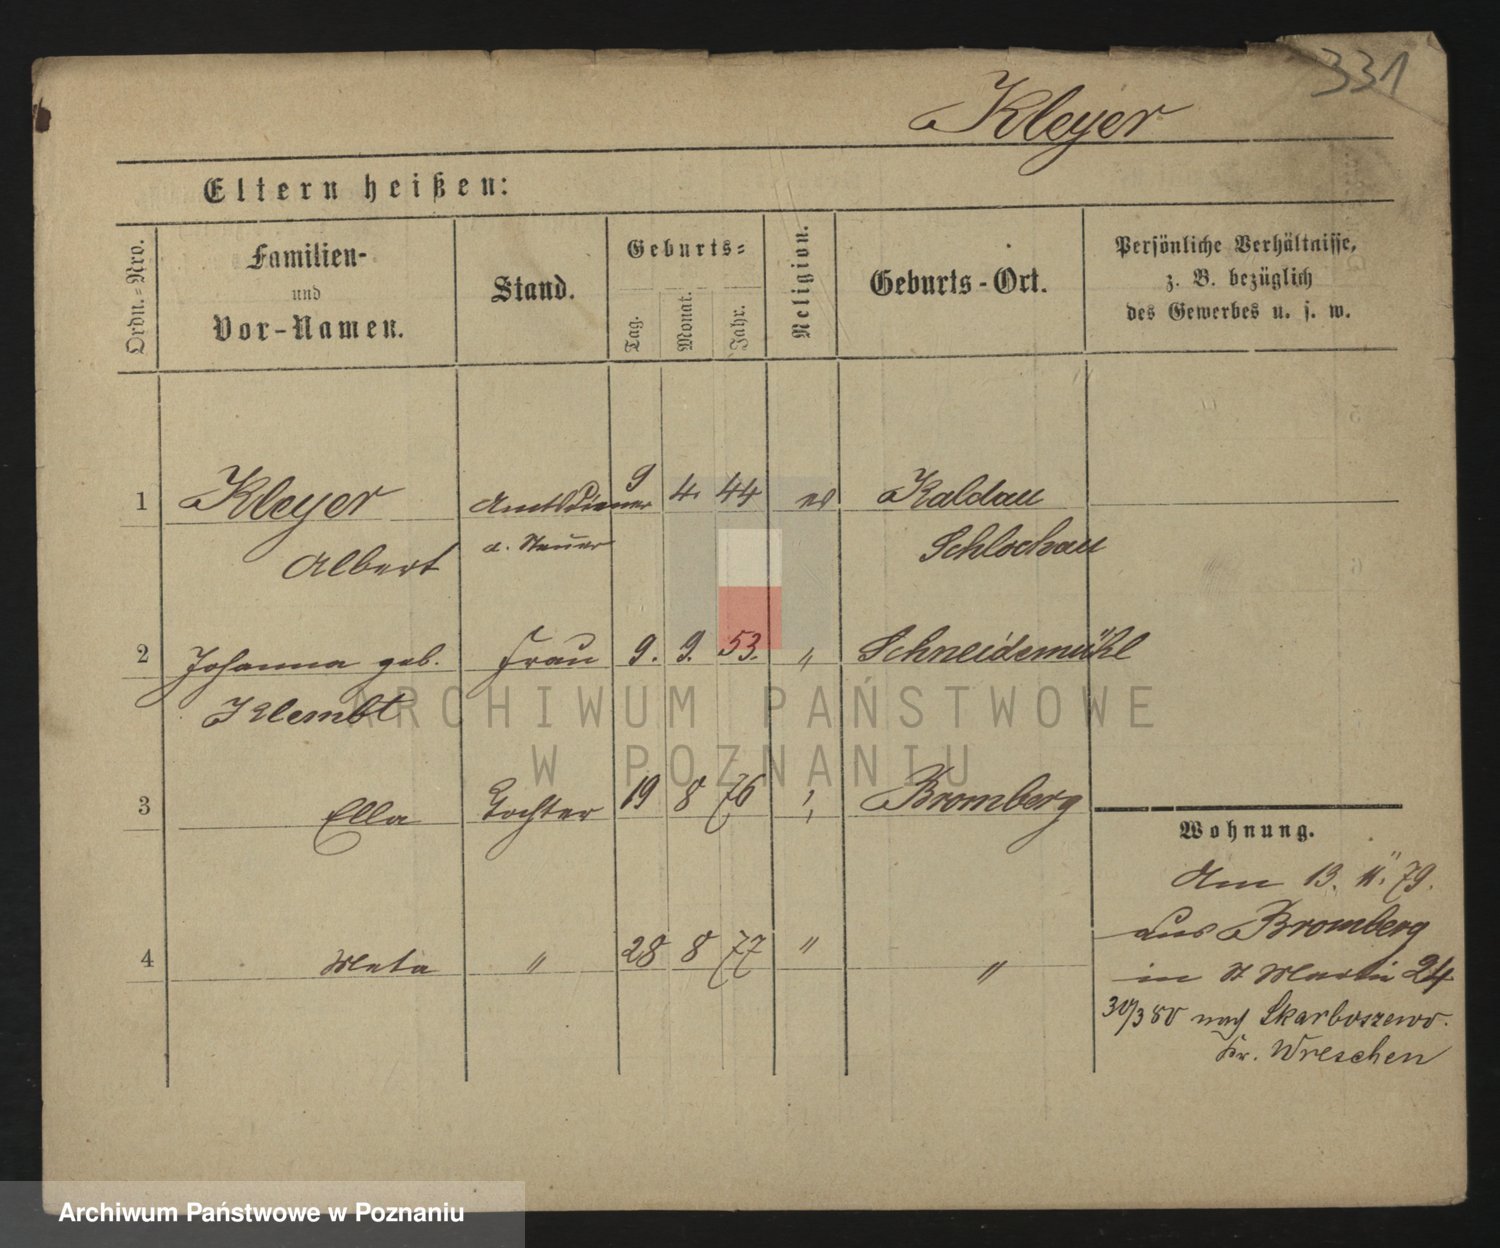 331
Kleyer
Eltern heißen:
Ordn.-Nro.
Familien-
und
Vor-Namen.
Stand.
Geburts-
Tag.
Monat.
Jahr.
Religion.
Geburts-Ort.
Persönliche Verhältnisse,
z. B. bezüglich
des Gewerbes u. s. w.
1 Kleyer Amtsdiener 9 4. 44 ev Kaldau
Albert a. Steuer Schlochau
2 Johanna geb. Frau 9. 9. 53. " Schneidemühl
Klembt
3 Ella Tochter 19 8 76 " Bromberg
4 Meta " 28 8 77 " "
Wohnung.
Am 13. 11. 79.
aus Bromberg
in St Martin 24
30/3 80 nach Skarboszewo.
Kr. Wreschen
ARCHIWUM PAŃSTWOWE
W POZNANIU
Archiwum Państwowe w Poznaniu